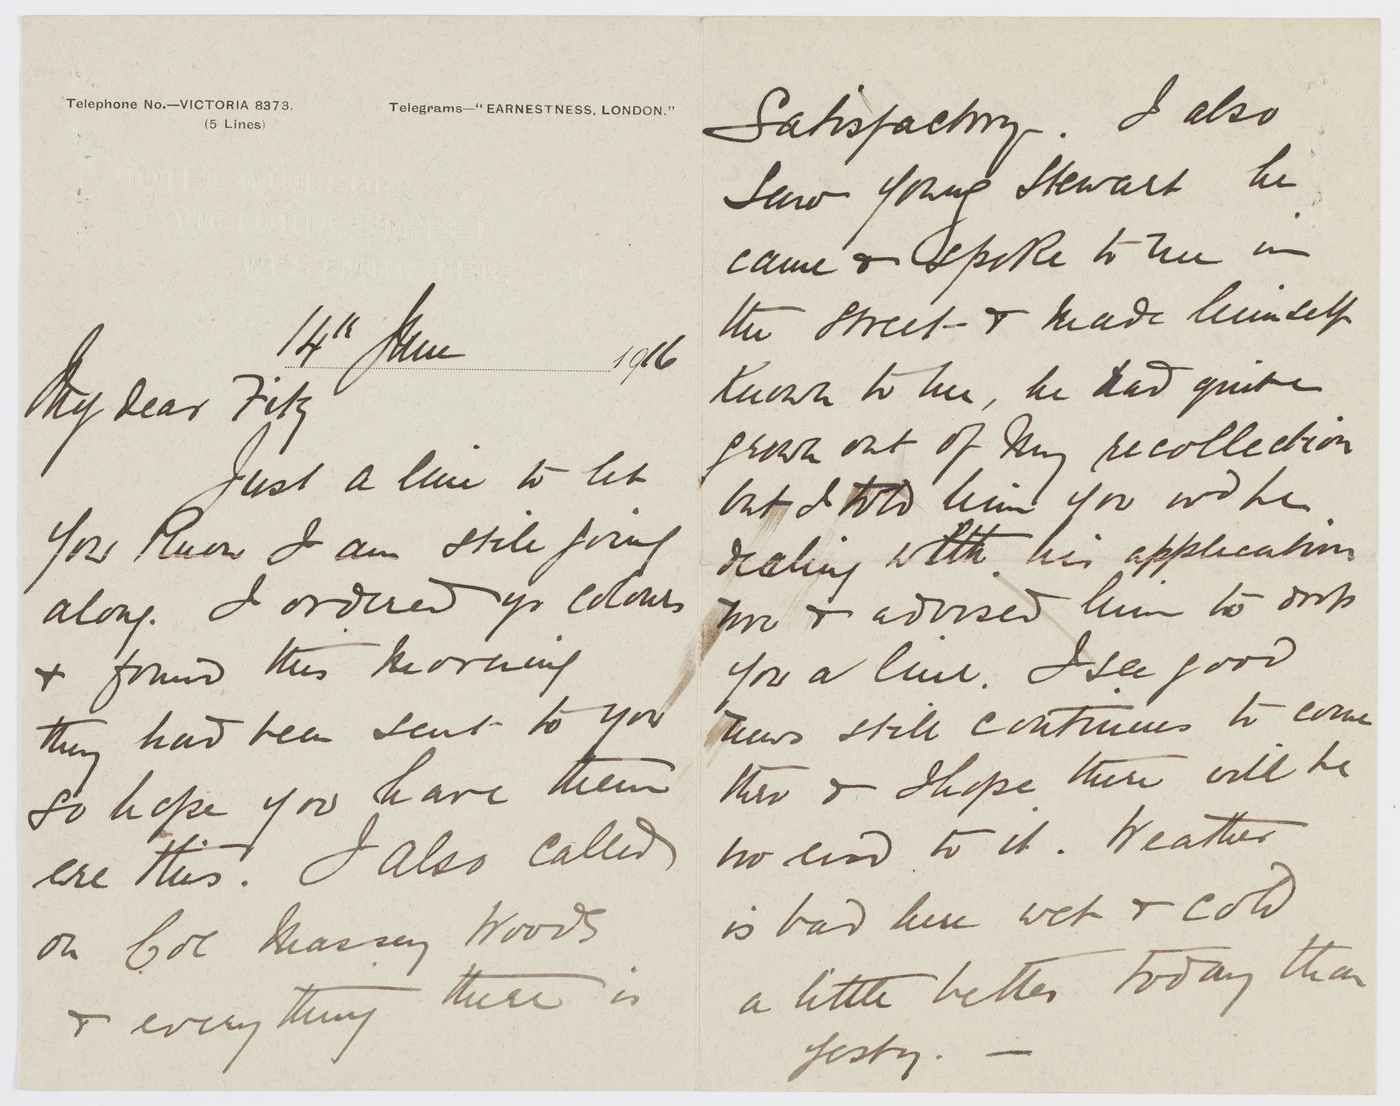 Telephone No.—VICTORIA 8373.
(5 Lines)
Telegrams—"EARNESTNESS, LONDON."
VICTORIA STREET
WESTMINSTER
14th June 1916
My dear Fitz
Just a line to let
you know I am still going
along. I ordered yr colours
& found this morning
they had been sent to you
so hope you have them
ere this. I also called
on Col Massey Woods
& everything there is
Satisfactory. I also
saw young Stewart he
came & spoke to me in
the street & made himself
known to me, he had quite
grown out of my recollection
but I told him you wd be
dealing with his application
now & advised him to drop
you a line. I see good
news still continues to come
thro & I hope there will be
no end to it. Weather
is bad here wet & cold
a little better today than
yesty. —